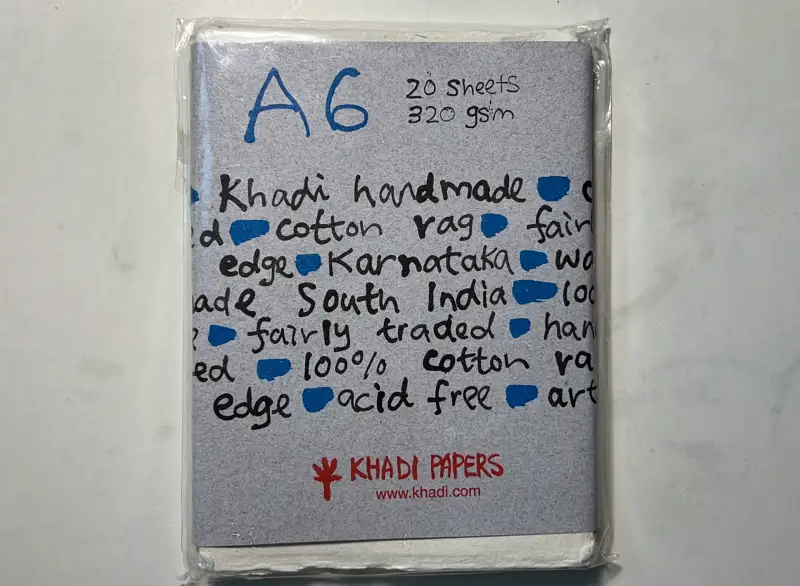 A6
20 sheets
320 gsm
Khadi handmade
cotton rag fair
edge Karnataka
South India
fairly traded han
100% cotton
edge acid free art
KHADI PAPERS
www.khadi.com